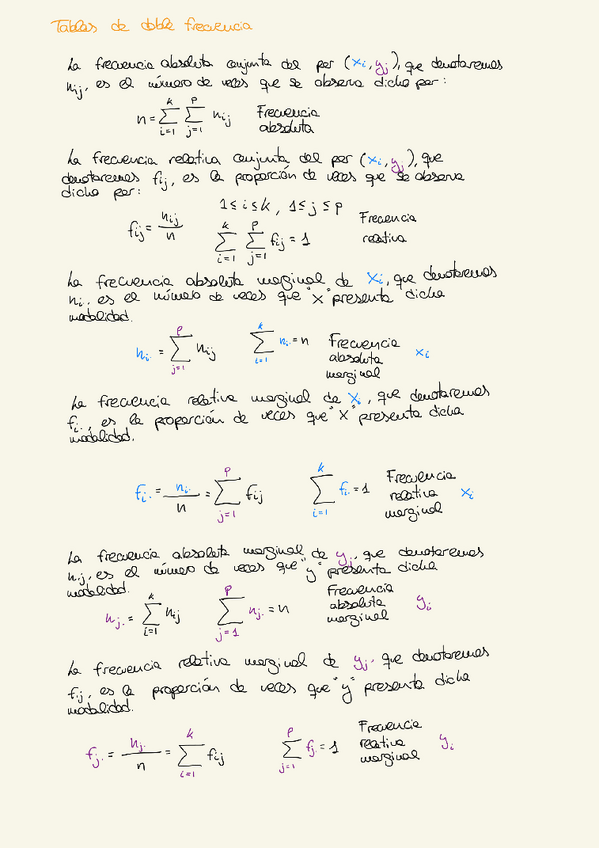 Tablas de doble frecuencia
La frecuencia absoluta conjunta del par (xi, yj), que denotaremos
nij, es el número de veces que se observa dicho par:
n = Σ_{i=1}^{k} Σ_{j=1}^{p} nij Frecuencia
absoluta
La frecuencia relativa conjunta del par (xi, yj), que
denotaremos fij, es la proporción de veces que se observa
dicho par:
1 ≤ i ≤ k, 1 ≤ j ≤ p
fij = nij / n Σ_{i=1}^{k} Σ_{j=1}^{p} fij = 1 Frecuencia
relativa
La frecuencia absoluta marginal de xi, que denotaremos
ni. es el número de veces que "x" presenta dicha
modalidad.
ni. = Σ_{j=1}^{p} nij Σ_{i=1}^{k} ni. = n Frecuencia
absoluta xi
marginal
La frecuencia relativa marginal de xi, que denotaremos
fi., es la proporción de veces que "x" presenta dicha
modalidad.
fi. = ni. / n = Σ_{j=1}^{p} fij Σ_{i=1}^{k} fi. = 1 Frecuencia
relativa xi
marginal
La frecuencia absoluta marginal de yj, que denotaremos
n.j, es el número de veces que "y" presenta dicha
modalidad.
nj. = Σ_{i=1}^{k} nij Σ_{j=1}^{p} nj. = n Frecuencia
absoluta yi
marginal
La frecuencia relativa marginal de yj. que denotaremos
fij, es la proporción de veces que "y" presenta dicha
modalidad.
fj. = nj. / n = Σ_{i=1}^{k} fij Σ_{j=1}^{p} fj. = 1 Frecuencia
relativa yi
marginal